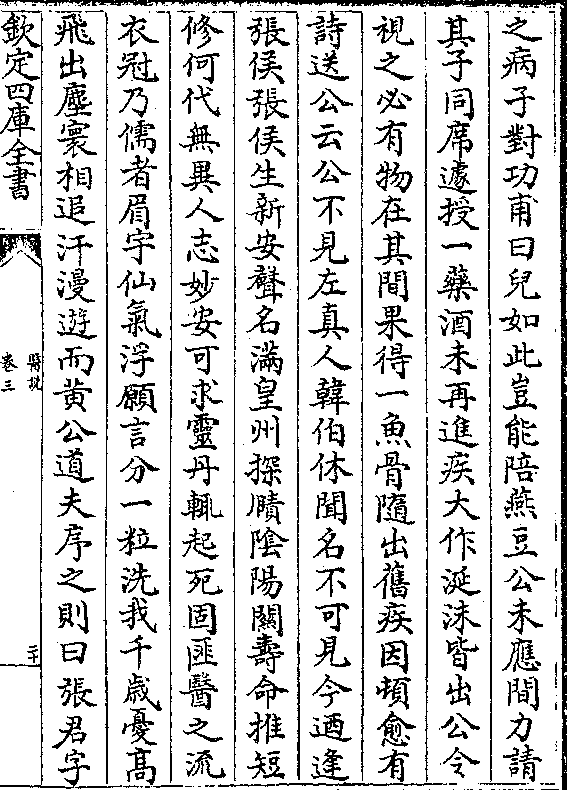 之病子對功甫曰兒如此豈能陪燕豆公未應間力請
其子同席遽授一藥酒未再進疾大作涎沫皆出公令
視之必有物在其間果得一魚骨隨出舊疾因頓愈有
詩送公云公不見左真人韓伯休聞名不可見今迺逢
張侯張侯生新安聲名滿皇州探賾陰陽關壽命推短
修何代無異人志妙安可求靈丹輒起死固匪醫之流
衣冠乃儒者眉宇仙氣浮願言分一粒洗我千歲憂高
飛出塵寰相追汗漫遊而黄公道夫序之則曰張君字
欽定四庫全書
醫說
卷三
二十